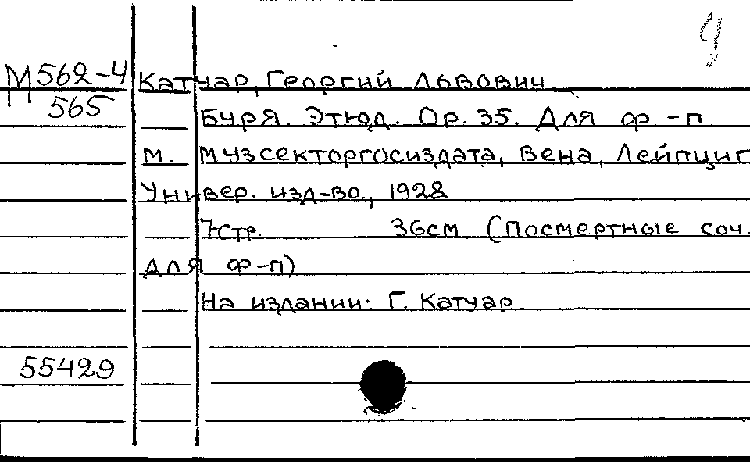 М 562-4
565
Катуар, Георгий Львович
Буря. Этюд. Ор. 35. Для ф-п
М. Музсекторгосиздата, Вена, Лейпциг
Универ. изд-во, 1928
7 стр. 36см (Посмертные соч.
для ф-п)
На издании: Г. Катуар
55429